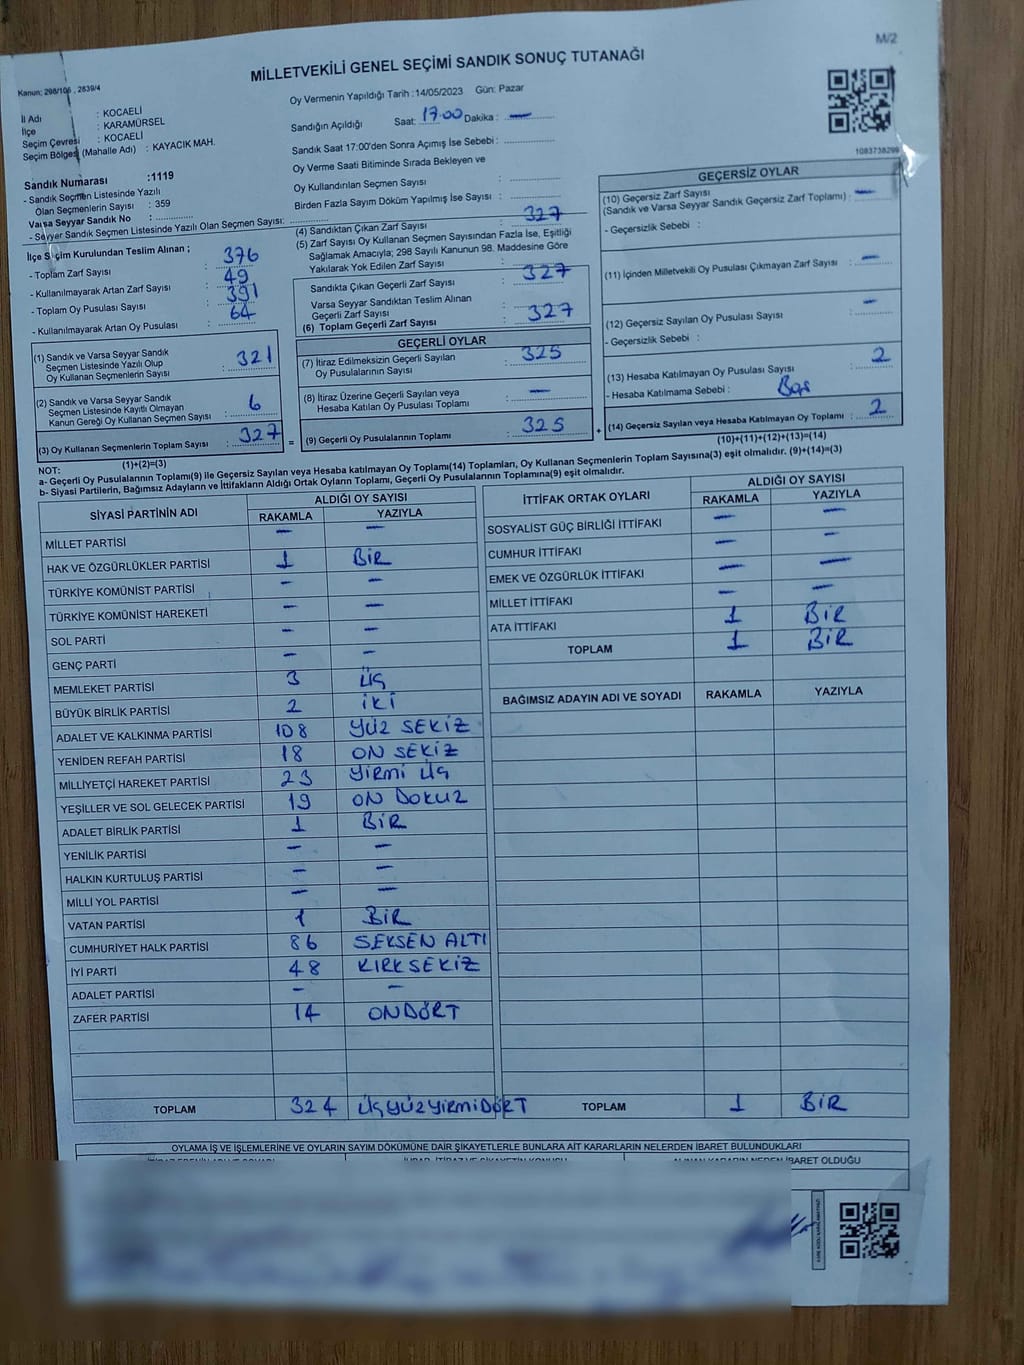 M/2
MİLLETVEKİLİ GENEL SEÇİMİ SANDIK SONUÇ TUTANAĞI
Kanun: 298/106 , 2839/4
İl Adı : KOCAELİ
İlçe : KARAMÜRSEL
Seçim Çevresi : KOCAELİ
Seçim Bölgesi (Mahalle Adı) : KAYACIK MAH.
Sandık Numarası :1119
- Sandık Seçmen Listesinde Yazılı
Olan Seçmenlerin Sayısı : 359
Varsa Seyyar Sandık No :
- Seyyar Sandık Seçmen Listesinde Yazılı Olan Seçmen Sayısı:
Oy Vermenin Yapıldığı Tarih :14/05/2023 Gün: Pazar
Sandığın Açıldığı Saat: 17.00 Dakika : —
Sandık Saat 17:00'den Sonra Açımış İse Sebebi :
Oy Verme Saati Bitiminde Sırada Bekleyen ve
Oy Kullandırılan Seçmen Sayısı :
Birden Fazla Sayım Döküm Yapılmış İse Sayısı :
1083738299
İlçe Seçim Kurulundan Teslim Alınan ;
- Toplam Zarf Sayısı : 376
- Kullanılmayarak Artan Zarf Sayısı : 49
- Toplam Oy Pusulası Sayısı : 391
- Kullanılmayarak Artan Oy Pusulası : 64
(1) Sandık ve Varsa Seyyar Sandık
Seçmen Listesinde Yazılı Olup
Oy Kullanan Seçmenlerin Sayısı : 321
(2) Sandık ve Varsa Seyyar Sandık
Seçmen Listesinde Kayıtlı Olmayan
Kanun Gereği Oy Kullanan Seçmen Sayısı : 6
(3) Oy Kullanan Seçmenlerin Toplam Sayısı : 327 =
(1)+(2)=(3)
(4) Sandıktan Çıkan Zarf Sayısı : 327
(5) Zarf Sayısı Oy Kullanan Seçmen Sayısından Fazla İse, Eşitliği
Sağlamak Amacıyla; 298 Sayılı Kanunun 98. Maddesine Göre
Yakılarak Yok Edilen Zarf Sayısı :
Sandıkta Çıkan Geçerli Zarf Sayısı : 327
Varsa Seyyar Sandıktan Teslim Alınan
Geçerli Zarf Sayısı :
(6) Toplam Geçerli Zarf Sayısı : 327
GEÇERLİ OYLAR
(7) İtiraz Edilmeksizin Geçerli Sayılan
Oy Pusulalarının Sayısı : 325
(8) İtiraz Üzerine Geçerli Sayılan veya
Hesaba Katılan Oy Pusulası Toplamı : —
(9) Geçerli Oy Pusulalarının Toplamı : 325 +
GEÇERSİZ OYLAR
(10) Geçersiz Zarf Sayısı
(Sandık ve Varsa Seyyar Sandık Geçersiz Zarf Toplamı) : —
- Geçersizlik Sebebi :
(11) İçinden Milletvekili Oy Pusulası Çıkmayan Zarf Sayısı : —
(12) Geçersiz Sayılan Oy Pusulası Sayısı : —
- Geçersizlik Sebebi :
(13) Hesaba Katılmayan Oy Pusulası Sayısı : 2
- Hesaba Katılmama Sebebi : Boş
(14) Geçersiz Sayılan veya Hesaba Katılmayan Oy Toplamı : 2
(10)+(11)+(12)+(13)=(14)
NOT:
a- Geçerli Oy Pusulalarının Toplamı(9) ile Geçersiz Sayılan veya Hesaba katılmayan Oy Toplamı(14) Toplamları, Oy Kullanan Seçmenlerin Toplam Sayısına(3) eşit olmalıdır. (9)+(14)=(3)
b- Siyasi Partilerin, Bağımsız Adayların ve İttifakların Aldığı Ortak Oyların Toplamı, Geçerli Oy Pusulalarının Toplamına(9) eşit olmalıdır.
SİYASİ PARTİNİN ADI ALDIĞI OY SAYISI
RAKAMLA YAZIYLA
MİLLET PARTİSİ — —
HAK VE ÖZGÜRLÜKLER PARTİSİ 1 BİR
TÜRKİYE KOMÜNİST PARTİSİ — —
TÜRKİYE KOMÜNİST HAREKETİ — —
SOL PARTİ — —
GENÇ PARTİ — —
MEMLEKET PARTİSİ 3 ÜÇ
BÜYÜK BİRLİK PARTİSİ 2 İKİ
ADALET VE KALKINMA PARTİSİ 108 YÜZ SEKİZ
YENİDEN REFAH PARTİSİ 18 ON SEKİZ
MİLLİYETÇİ HAREKET PARTİSİ 23 YİRMİ ÜÇ
YEŞİLLER VE SOL GELECEK PARTİSİ 19 ON DOKUZ
ADALET BİRLİK PARTİSİ 1 BİR
YENİLİK PARTİSİ — —
HALKIN KURTULUŞ PARTİSİ — —
MİLLİ YOL PARTİSİ — —
VATAN PARTİSİ 1 BİR
CUMHURİYET HALK PARTİSİ 86 SEKSEN ALTI
İYİ PARTİ 48 KIRK SEKİZ
ADALET PARTİSİ — —
ZAFER PARTİSİ 14 ONDÖRT
TOPLAM 324 ÜÇYÜZYİRMİDÖRT
İTTİFAK ORTAK OYLARI ALDIĞI OY SAYISI
RAKAMLA YAZIYLA
SOSYALİST GÜÇ BİRLİĞİ İTTİFAKI — —
CUMHUR İTTİFAKI — —
EMEK VE ÖZGÜRLÜK İTTİFAKI — —
MİLLET İTTİFAKI — —
ATA İTTİFAKI 1 BİR
TOPLAM 1 BİR
BAĞIMSIZ ADAYIN ADI VE SOYADI RAKAMLA YAZIYLA
TOPLAM 1 BİR
OYLAMA İŞ VE İŞLEMLERİNE VE OYLARIN SAYIM DÖKÜMÜNE DAİR ŞİKAYETLERLE BUNLARA AİT KARARLARIN NELERDEN İBARET BULUNDUKLARI
İBARET OLDUĞU